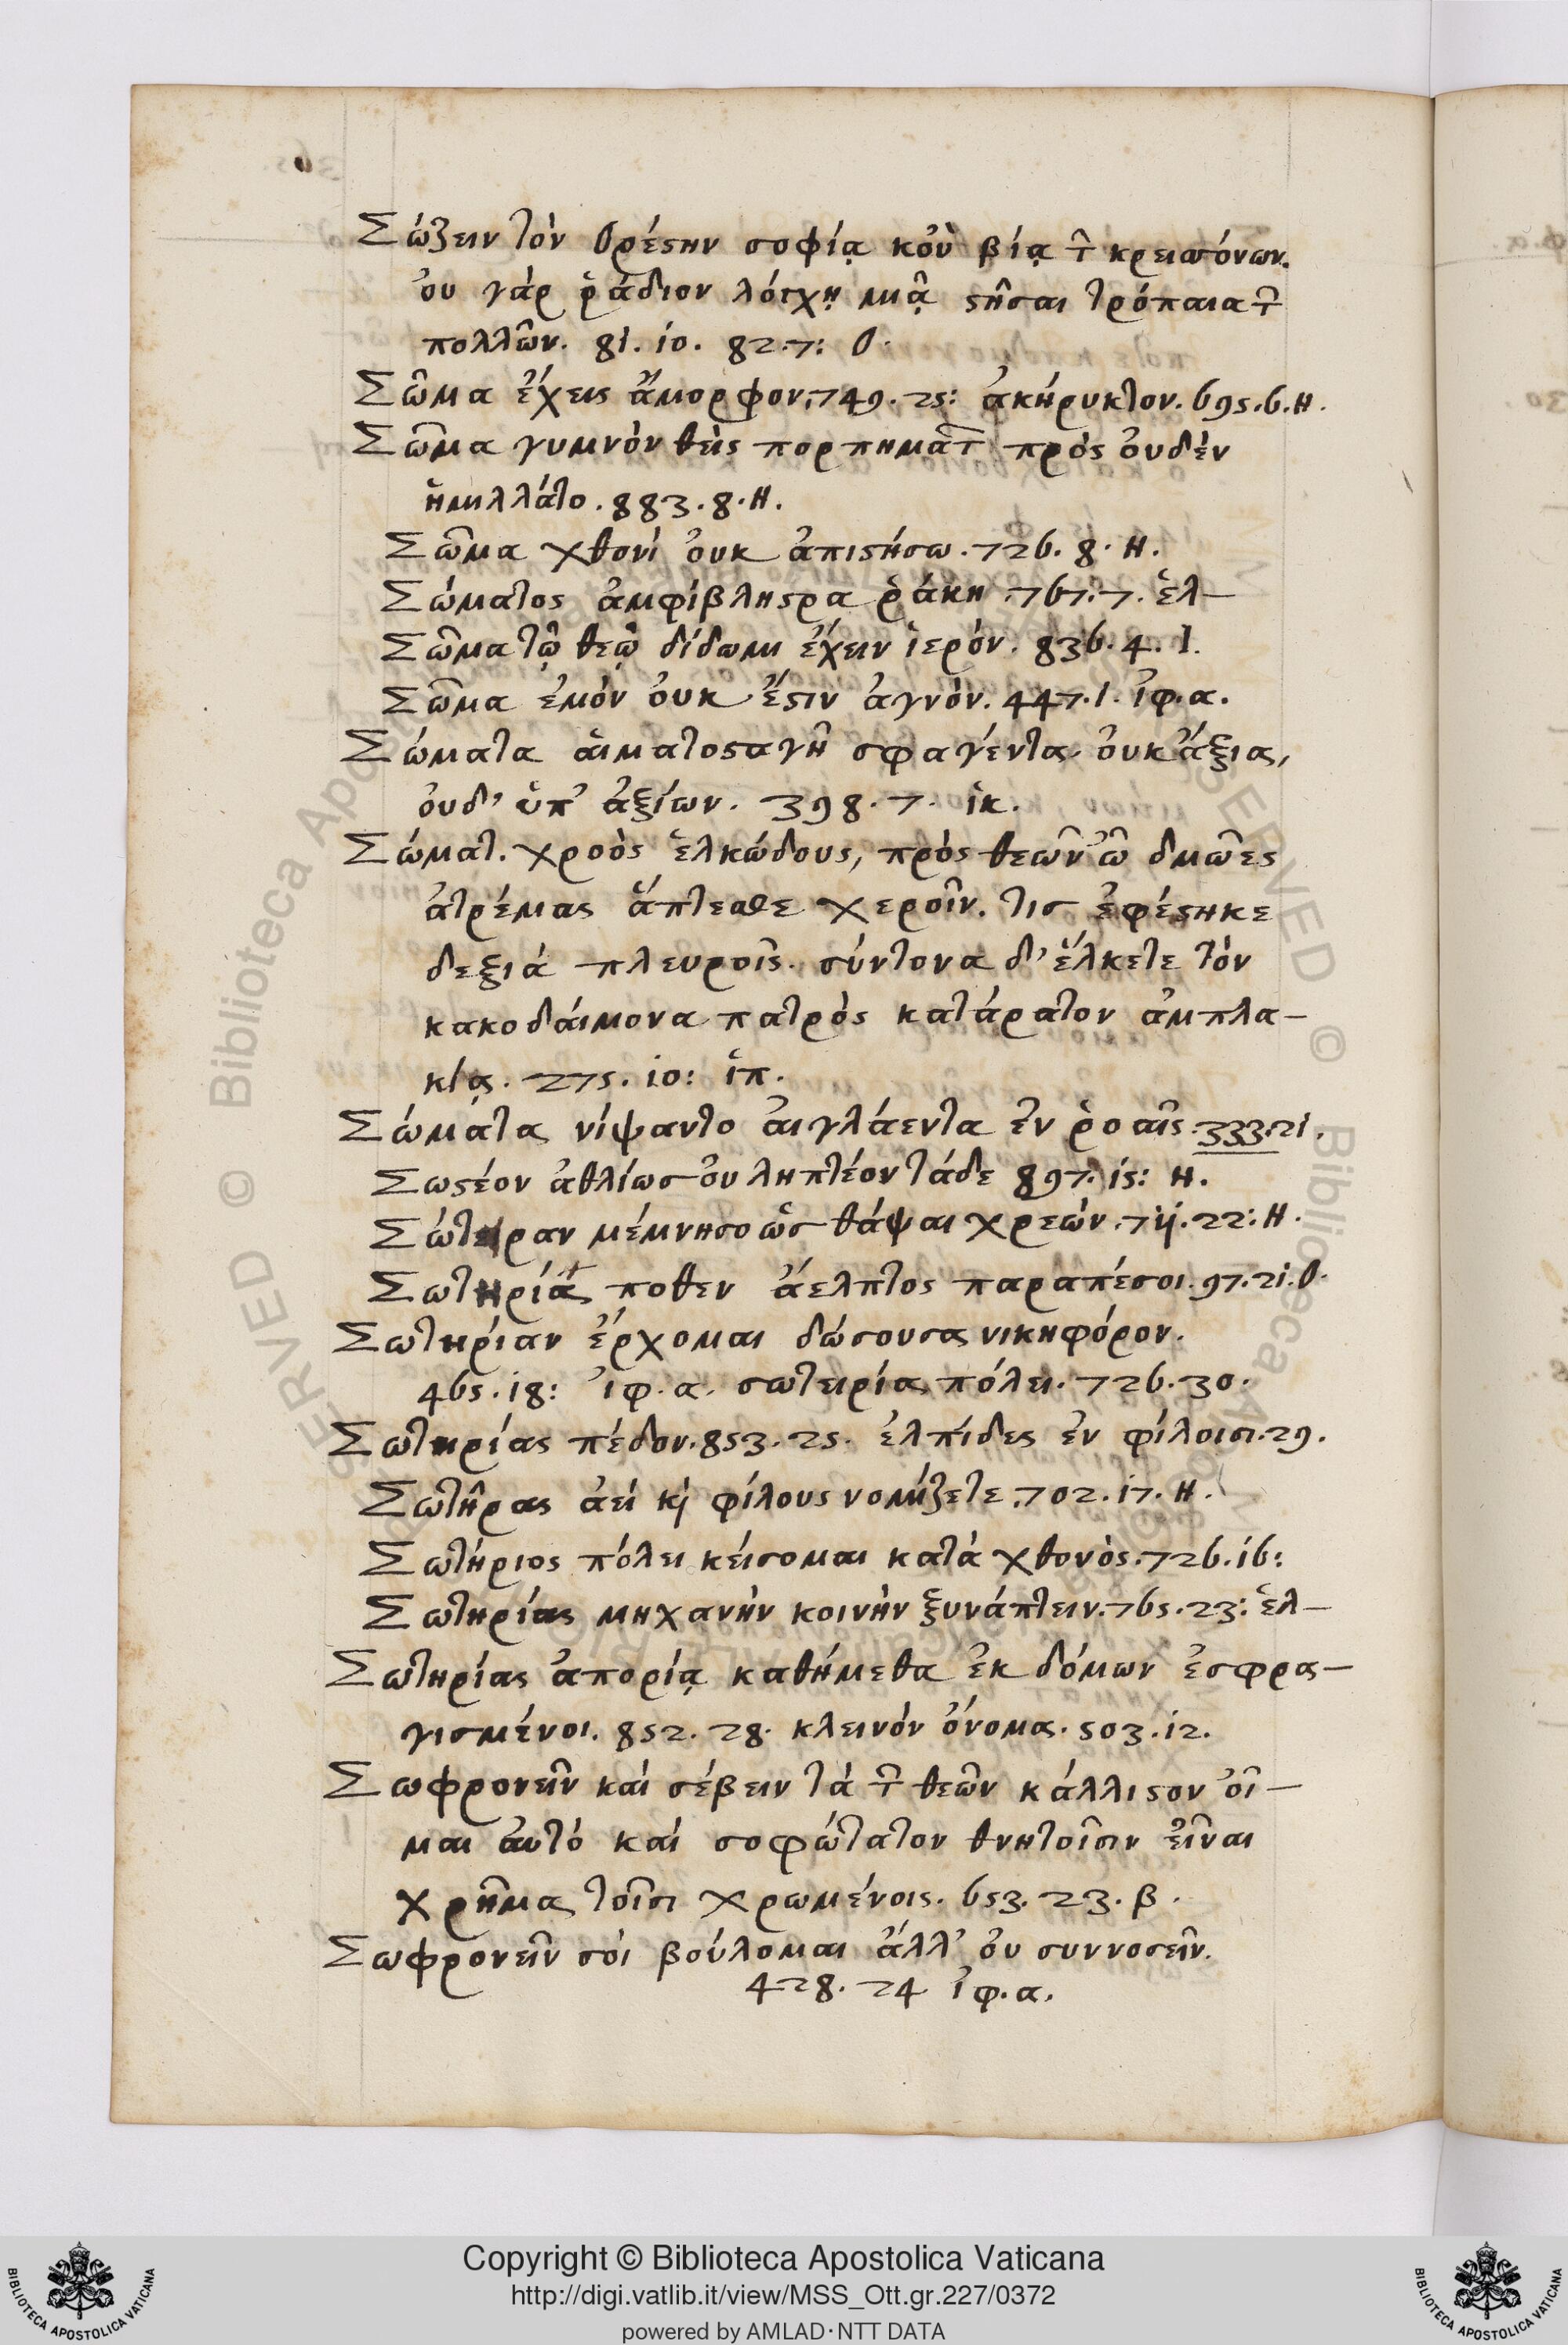 Σώζειν τὸν ὀρέστην σοφίᾳ κοὐ βίᾳ τ̑ κρεισσόνων.
ὀυ γὰρ ῥάδιον λόγχῃ μιᾷ στῆσαι τρόπαια τ̑
πολλῶν. 81. 10. 82. 7: ο.
Σῶμα ἔχεις ἄμορφον. 749. 25: ἀκήρυκτον. 695. 6. Η.
Σῶμα γυμνὸν θεὶς πορπημάτ̑ πρὸς ὀυδὲν
ἡμιλλᾶτο. 883. 8. Η.
Σῶμα χθονὶ ὀυκ ἀπιστήσω. 726. 8. Η.
Σώματος ἀμφίβληστρα ῥάκη. 767. 7. ἑλ-
Σῶμα τῷ θεῷ δίδωμι ἔχειν ἱερὸν. 836. 4. Ι.
Σῶμα ἐμὸν ὀυκ ἔστιν ἁγνὸν. 447. 1. ἰφ. α.
Σώματα αἱματοσταγῆ σφαγέντα ὀυκ ἄξια,
ὀυδ' ὑπ' ἀξίων. 398. 7. ἱκ.
Σώματ. χροὸς ἑλκώδους, πρὸς θεῶν ὦ δμῶες
ἀτρέμας ἅπτεσθε χεροῖν. τις ἐφέστηκε
δεξιά πλευροῖς. σύντονα δ' ἕλκετε τὸν
κακοδαίμονα πατρὸς κατάρατον ἀμπλα-
κίας. 275. 10: ἱπ.
Σώματα νίψαντο αἰγλάεντα ἐν ῥοαῖς. 333. 21.
Σωστέον ἀθλίως ὀυ ληπτέον τάδε 897. 15: Η.
Σώτειραν μέμνησο ὡς θάψαι χρεών. 711. 22: Η.
Σωτηρία ποθεν ἄελπτος παραπέσοι. 97. 21. ο.
Σωτηρίαν ἔρχομαι δώσουσα νικηφόρον.
465. 18: ἰφ. α. σωτειρία πόλει. 726. 30.
Σωτηρίας πέδον. 853. 25. ἐλπίδες ἐν φίλοισι. 29.
Σωτῆρας ἀεὶ κὶ φίλους νομίζετε. 702. 17. Η.
Σωτήριος πόλει κείσομαι κατὰ χθονὸς. 726. 16:
Σωτηρίας μηχανὴν κοινὴν ξυνάπτειν. 765. 23: ἑλ-
Σωτηρίας ἀπορίᾳ καθήμεθα ἐκ δόμων ἐσφρα-
γισμένοι. 852. 28. κλεινὸν ὄνομα. 503. 12.
Σωφρονεῖν καὶ σέβειν τὰ τ̑ θεῶν κάλλιστον οἶ-
μαι ἀυτὸ καὶ σοφώτατον θνητοῖσιν εἶναι
χρῆμα τοῖσι χρωμένοις. 653. 23. β.
Σωφρονεῖν σὸι βούλομαι ἀλλ' ὀυ συννοσεῖν.
428. 24 ἰφ. α.
Copyright © Biblioteca Apostolica Vaticana
http://digi.vatlib.it/view/MSS_Ott.gr.227/0372
powered by AMLAD·NTT DATA